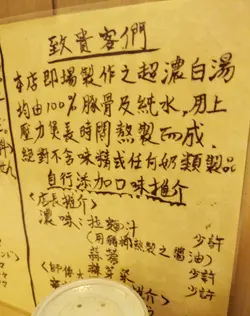 致貴客們
本店即場製作之超濃白湯
均由100%豚骨及純水,用上
壓力煲長時間熬製而成.
絕對不含味精或任何奶類製品
自行添加口味推介
<店長推介>
濃味:拉麵汁 少許
(用豬燒熬製之醬油)
蒜蓉 少許
辣菜 少許